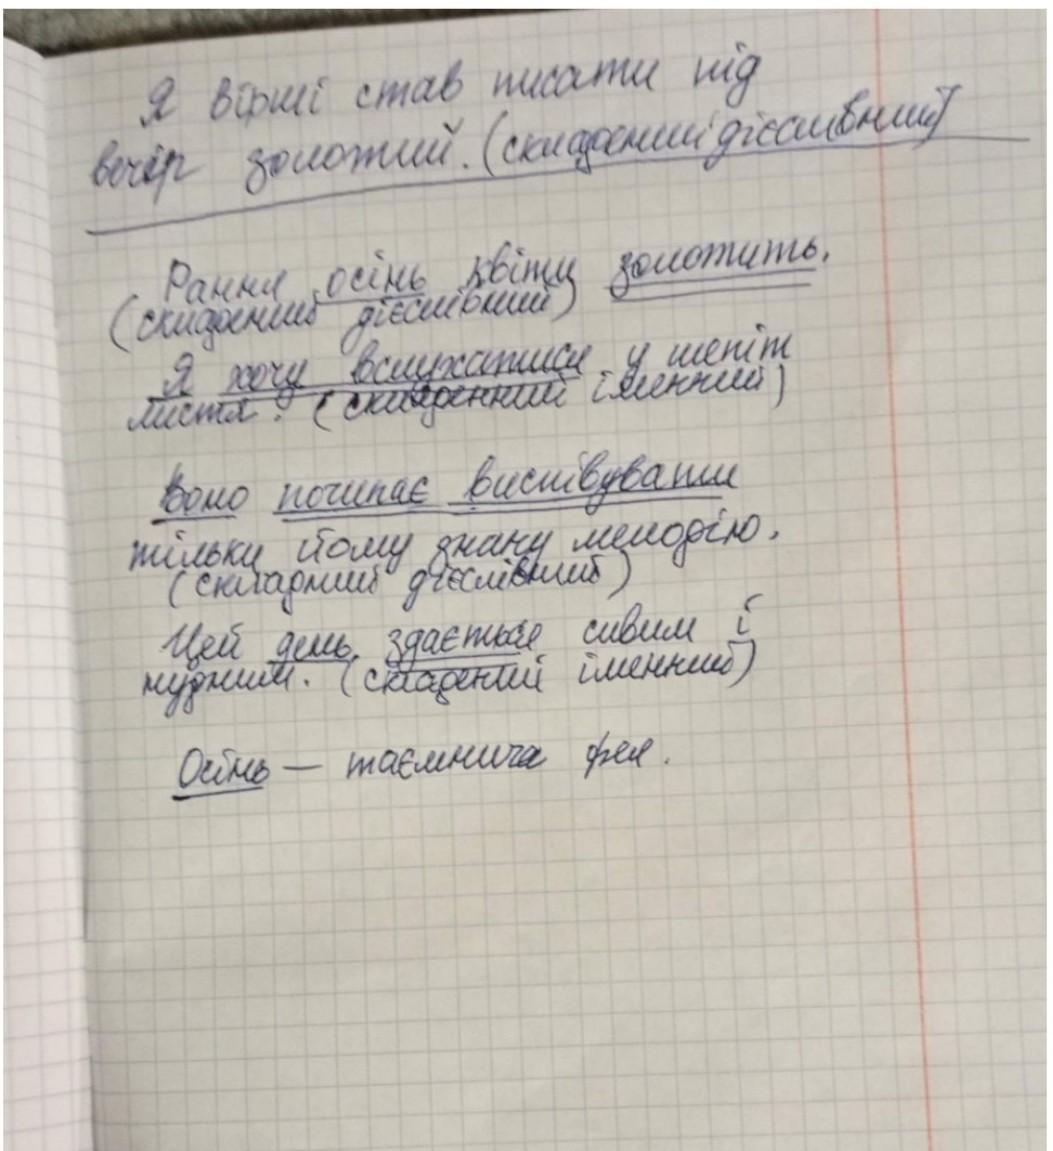 Я вірші став писати під
вечір золотий. (складений дієслівний)
Рання осінь квіти золотить.
(складений дієслівний)
Я хочу вслухатися у шепіт
листя. (складенний іменний)
Воно починає виспівувати
тільки йому знану мелодію.
(складний дієслівний)
Цей день здається сивим і
нудним. (складений іменний)
Осінь — таємнича фея.